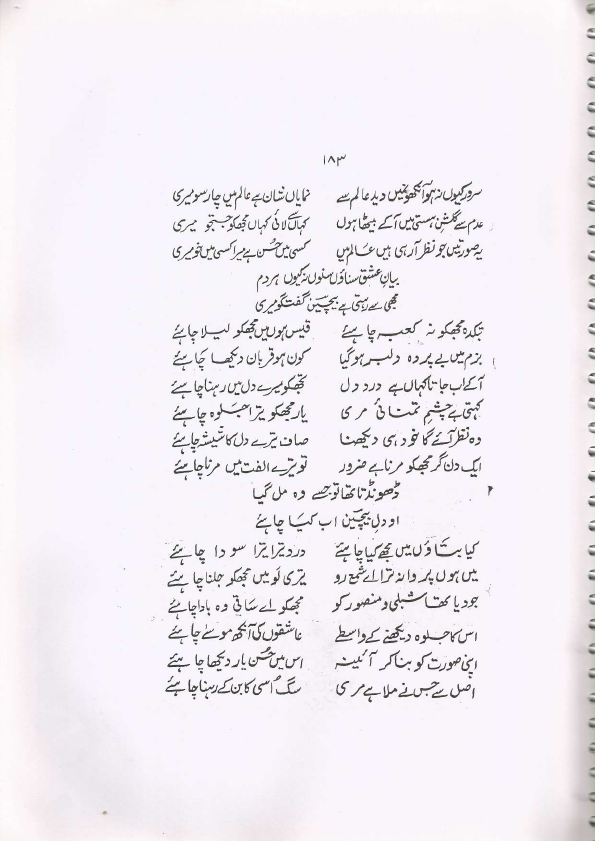 ۱۸۳
سرور کیوں نہ ہو آنکھوں میں دید عالم سے نمایاں نشان ہے عالم میں چار سو میری
عدم سے گلشن ہستی میں آکے بیٹھا ہوں کہاں سے لائی کہاں مجھکو جستجو میری
یہ صورتیں جو نظر آرہی ہیں عالم میں کسی میں حسن ہے میرا کسی میں خو میری
بیانِ عشق سناؤں سنوں نہ کیوں ہر دم
مجھی سے رہتی ہے بیچین گفتگو میری
بتکدہ مجھکو نہ کعبہ چاہئے قیس ہوں میں مجھکو لیلا چاہئے
بزم میں بے پردہ دلبر ہوگیا کون ہو قربان دیکھا چاہئے
آکے اب جاتا کہاں ہے درد دل تجھکو میرے دل میں رہنا چاہئے
کہتی ہے چشمِ تمنائی مری یار مجھکو تیرا جلوہ چاہئے
وہ نظر آئے گا خود ہی دیکھنا صاف تیرے دل کا شیشہ چاہئے
ایک دن گر مجھکو مرنا ہے ضرور تو تیرے الفت میں مرنا چاہئے
۲ ڈھونڈتا تھا تو جسے وہ مل گیا
او دلِ بیچین اب کیا چاہئے
کیا بتاؤں میں مجھے کیا چاہئے درد تیرا تیرا سودا چاہئے
میں ہوں پروانہ ترا اے شمع رو تیری لو میں مجھکو جلنا چاہئے
جو دیا تھا شبلی و منصور کو مجھکو اے ساقی وہ بادا چاہئے
اس کا جلوہ دیکھنے کے واسطے عاشقوں کی آنکھ موسےٰ چاہئے
اپنی صورت کو بنا کر آئینہ اس میں حسن یار دیکھا چاہئے
اصل سے جس نے ملا ہے مری سگ اُسی کا بن کے رہنا چاہئے